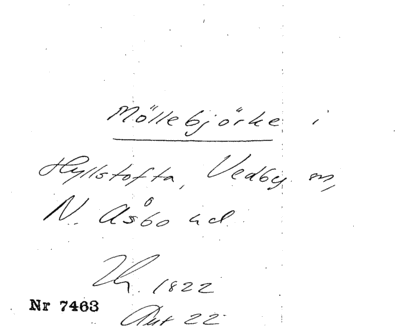 Möllebjörke i
Hyllstofta, Vedby sn,
N. Åsbo hd
1822
Nr 7463
22